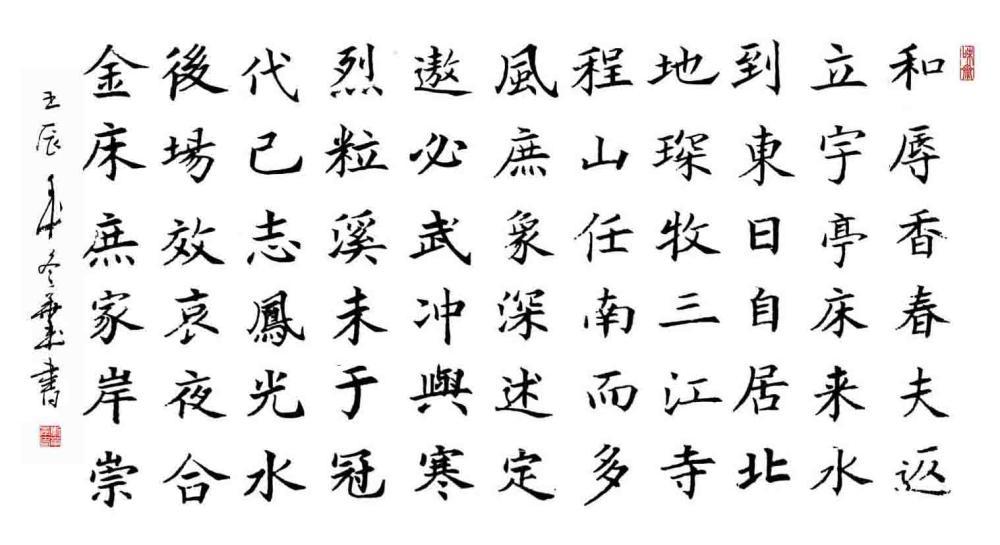 和辱香春夫返
立宇亭床来水
到東日自居北
地琛牧三江寺
程山任南而多
風庶象深述定
遨必武冲與寒
烈粒溪未于冠
代己志鳳光水
後場效哀夜合
金床庶家岸崇
壬辰年冬書